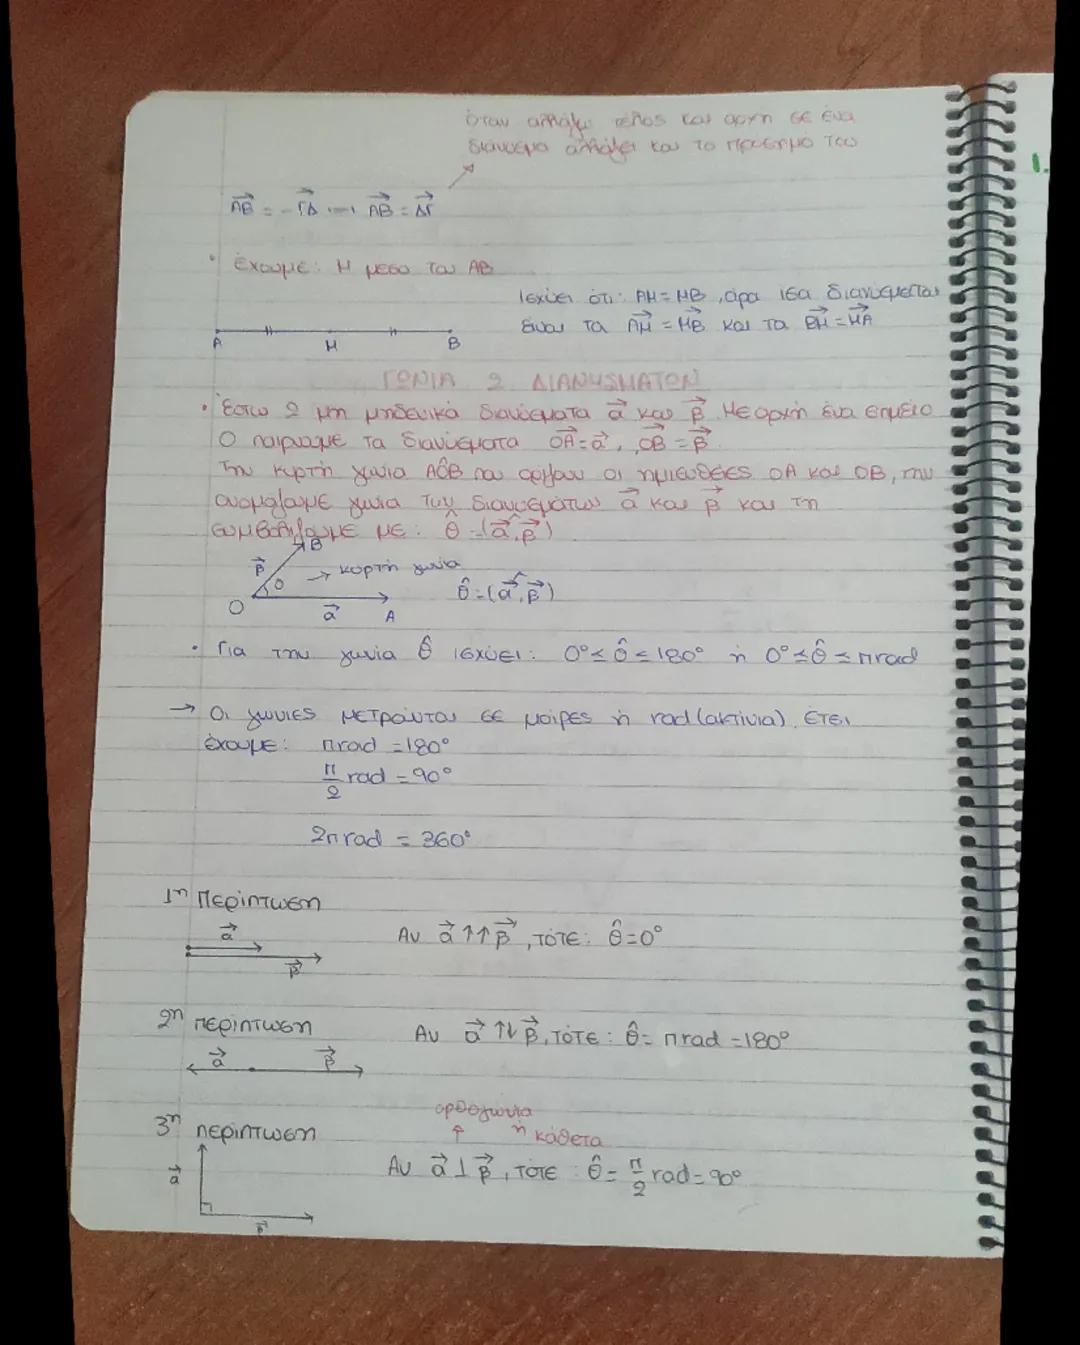 όταν αλλάζω τέλος και αρχή σε ένα
διάνυσμα αλλάζει και το πρόσημο του
1.
AB = -ΓΔ → AB = ΔΓ
• Έχουμε: Μ μέσο του ΑΒ
Ισχύει ότι: AM = MB, άρα ίσα διανύσματα
είναι τα AM = MB και τα BM = MA
A M B
ΓΩΝΙΑ 2 ΔΙΑΝΥΣΜΑΤΩΝ
• Έστω 2 μη μηδενικά διανύσματα α και β. Με αρχή ένα σημείο
Ο παίρνουμε τα διανύσματα OA = α, OB = β
Την κυρτή γωνία AÔB που ορίζουν οι ημιευθείες ΟΑ και ΟΒ, την
ονομάζουμε γωνία των διανυσμάτων α και β και τη
συμβολίζουμε με: θ̂ = (α,β)
B
β θ → κυρτή γωνία
θ̂ = (α,β)
O α A
• Για την γωνία θ̂ ισχύει: 0° ≤ θ̂ ≤ 180° ή 0° ≤ θ̂ ≤ π rad
→ Οι γωνίες μετρούνται σε μοίρες ή rad (ακτίνια). Έτσι
έχουμε: π rad = 180°
π/2 rad = 90°
2π rad = 360°
1η Περίπτωση
α Αν α ↑↑ β, τότε: θ̂ = 0°
β
2η περίπτωση
Αν α ↑↓ β, τότε: θ̂ = π rad = 180°
α β
ορθογώνια
3η περίπτωση ή κάθετα
α Αν α ⊥ β, τότε: θ̂ = π/2 rad = 90°
β